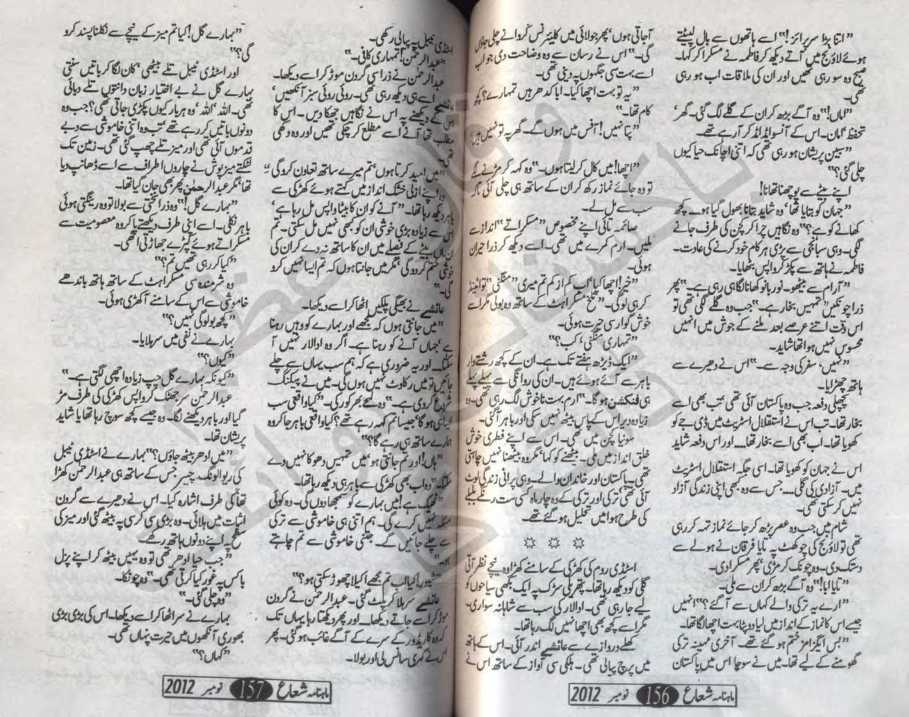 ”اتنا بڑا سرپرائز!“ اسے ہاتھوں سے بال لپیٹتے
ہوئے لاؤنج میں آتے دیکھ کر فاطمہ نے مسکرا کر کہا۔
صبح وہ سو رہی تھیں اور ان کی ملاقات اب ہو رہی
تھی۔
”ماں!“ وہ آگے بڑھ کر ان کے گلے لگ گئی۔ گھر‘
تحفظ‘ امان۔ اس کے آنسو امڈ امڈ کر آ رہے تھے۔
”سبین پریشان ہو رہی تھی کہ اتنی اچانک حیا کیوں
چلی گئی؟“
اپنے بیٹے سے پوچھنا تھا نا!
”جہان کو بتایا تھا‘ وہ شاید بتانا بھول گیا ہو۔ کچھ
کھانے کو ہے؟“ وہ نگاہیں چرا کر کچن کی طرف جانے
لگی۔ وہی سبانجی سے پڑی ہر کام خود کرنے کی عادت۔
فاطمہ نے ہاتھ سے پکڑ کر واپس بٹھایا۔
”آرام سے بیٹھو۔ نور بانو کھانا لگا رہی ہے۔“ پھر
ذرا چونکیں ”تمہیں بخار ہے۔“ جب وہ گلے لگی تھی تو
اس وقت اتنے عرصے بعد ملنے کے جوش میں انہیں
محسوس نہیں ہوا تھا شاید۔
”نہیں‘ سفر کی وجہ سے۔“ اس نے دھیرے سے
ہاتھ چھڑایا۔
پچھلی دفعہ جب وہ پاکستان آئی تھی تب بھی اسے
بخار تھا۔ تب اس نے استقلال اسٹریٹ میں ڈی جے کو
کھویا تھا۔ اب بھی اسے بخار تھا۔ اور اس دفعہ شاید
اس نے جہان کو کھویا تھا۔ اسی جگہ استقلال اسٹریٹ
میں۔ آزادی کی گلی۔ جس سے وہ بھی اپنی زندگی آزاد
شام میں جب وہ عصر پڑھ کر جائے نماز تہہ کر رہی
تھی تو لاؤنج کی چوکھٹ پہ تایا فرقان نے ہولے سے
دستک دی۔ وہ چونک کر مڑی‘ پھر مسکرا دی۔
”تایا ابا!“ وہ آگے بڑھ کر ان سے ملی۔
”ارے یہ ترکی والے کہاں سے آ گئے؟“ انہیں
جیسے اس کا نماز کے انداز میں لیا دوپٹا بہت اچھا لگا تھا۔
”بس ایگزامز ختم ہو گئے تھے۔ آخری مہینہ ترکی
گھومنے کے لیے تھا۔ میں نے سوچا اس میں پاکستان
آ جاتی ہوں‘ پھر جولائی میں کلیئرنس کروانے چلی جاؤں
گی۔“ اس نے رسان سے وہ وضاحت دی جو اب
اسے بہت سی جگہوں پہ دینی تھی۔
”یہ تو بہت اچھا کیا۔ ابا کدھر ہیں تمہارے؟ کچھ
کام تھا۔“
”پتا نہیں! آفس میں ہوں گے۔ گھر پہ تو نہیں ہیں
”اچھا! میں کال کر لیتا ہوں۔“ وہ کہہ کر مڑنے لگے
تو وہ جائے نماز رکھ کر ان کے ساتھ ہی چلی آئی تاکہ
سب سے مل لے۔
صائمہ تائی اپنے مخصوص ”مسکراتے“ انداز سے
ملیں۔ ارم کمرے میں تھی۔ اسے دیکھ کر ذرا حیران
ہوئی۔
”خیر! اچھا کیا‘ اب کم از کم تم میری ”منگنی“ تو اٹینڈ
کر ہی لو گی۔“ تلخ مسکراہٹ کے ساتھ وہ بولی مگر اسے
خوش گوار سی حیرت ہوئی۔
”تمہاری منگنی‘ کب؟“
”ایک ڈیڑھ ہفتے تک ہے۔ ان کے کچھ رشتے دار
باہر سے آئے ہوئے ہیں۔ ان کی روانگی سے پہلے پہلے
ہی فنکشن ہو گا۔“ ارم بہت ناخوش لگ رہی تھی۔ وہ
زیادہ دیر اس کے پاس بیٹھ نہیں سکی اور باہر آ گئی۔
سونیا کچن میں تھی۔ اس سے اپنے فطری خوش
خلق انداز میں ملی۔ بیٹھنے کو کہا‘ مگر وہ بیٹھنا نہیں چاہتی
تھی۔ پاکستان اور خاندان والے۔ وہی پرانی زندگی لوٹ
آئی تھی۔ ترکی اور ترکی کے وہ چار ماہ کسی ست رنگے بلبلے
کی طرح ہوا میں تحلیل ہو گئے تھے۔
☆ ☆ ☆
اسٹڈی روم کی کھڑکی کے سامنے کھڑا وہ نیچے نظر آتی
گلی کو دیکھ رہا تھا۔ پتھریلی سڑک پہ ایک بگھی سیاحوں کو
لیے جا رہی تھی۔ ادالار کی سب سے شاہانہ سواری۔
مگر اسے کچھ بھی اچھا نہیں لگ رہا تھا۔
کھلے دروازے سے عائشے اندر آئی۔ اس کے ہاتھ
میں پرچ پیالی تھی۔ ہلکی سی آواز کے ساتھ اس نے
ماہنامہ شعاع 156 نومبر 2012
اسٹڈی ٹیبل پہ پیالی رکھی۔
”عبدالرحمن! تمہاری کافی۔“
عبدالرحمن نے ذرا سی گردن موڑ کر اسے دیکھا۔
اسے ہی دیکھ رہی تھی۔ روئی روئی سبز آنکھیں‘
کے دیکھنے پہ اس نے نگاہیں جھکا دیں۔ اس کا
مطلب تھا آنے اسے مطلع کر چکی تھیں اور وہ دکھی
تھی۔
”میں امید کرتا ہوں‘ تم میرے ساتھ تعاون کرو گی“
وہ اپنے ازلی خشک انداز میں کہتے ہوئے کھڑکی سے
باہر دیکھ رہا تھا۔ ”آنے کو ان کا بیٹا واپس مل رہا ہے‘
اس سے زیادہ بڑی خوشی ان کو کبھی نہیں مل سکتی۔ تم
ان ماں بیٹے کے فیصلے میں ان کا ساتھ نہ دے کر ان کی
خوشی ختم کرو گی‘ مگر میں جانتا ہوں کہ تم ایسا نہیں کرو
گی۔“
عائشے نے بھیگی پلکیں اٹھا کر اسے دیکھا۔
”میں جانتی ہوں کہ مجھے اور بہارے کو وہیں رہنا
ہے‘ جہاں آنے کو رہنا ہے۔ اگر وہ ادالار نہیں آ
سکتا‘ اور یہ ضروری ہے کہ ہم سب یہاں سے چلے
جائیں تو میں رکاوٹ نہیں ہوں گی۔ میں نے پیکنگ
کر دی ہے۔“ وہ لمحے بھر کو رکی۔ ”کیا واقعی سب
ویسا ہی ہو گا جیسا تم کہہ رہے تھے؟ کیا واقعی باہر جا کر وہ
ہمارے ساتھ ہی رہے گا؟“
”ہاں! اور تم جانتی ہو‘ میں تمہیں دھوکا نہیں دے
سکتا۔“ وہ اب بھی کھڑکی سے باہر ہی دیکھ رہا تھا۔
”ٹھیک ہے! میں بہارے کو سمجھا دوں گی۔ وہ کوئی
مسئلہ نہیں کرے گی۔ ہم اتنی ہی خاموشی سے ترکی
سے چلے جائیں گے۔ جتنی خاموشی سے تم چاہتے
ہو۔“
”شکریہ! کیا اب تم مجھے اکیلا چھوڑ سکتی ہو؟“
عائشے سر ہلا کر پلٹ گئی۔ عبدالرحمن نے گردن
موڑ کر اسے جاتے دیکھا۔ اور پھر دیکھتا رہا یہاں تک
کہ وہ کاریڈور کے سرے کے آگے غائب ہو گئی۔ پھر
اس نے گہری سانس لی اور بولا۔
”بہارے گل! کیا تم میز کے نیچے سے نکلنا پسند کرو
گی؟“
اور اسٹڈی ٹیبل تلے بیٹھی‘ کان لگا کر باتیں سنتی
بہارے گل نے بے اختیار زبان دانتوں تلے دبائی
تھی۔ اللہ‘ اللہ‘ وہ ہر بار کیوں پکڑی جاتی تھی؟ جب وہ
دونوں باتیں کر رہے تھے‘ تب وہ اتنی خاموشی سے دبے
قدموں آئی تھی اور میز تلے چھپ گئی تھی۔ زمین تک
لٹکتے میز پوش نے چاروں اطراف سے اسے ڈھانپ دیا
تھا‘ مگر عبدالرحمن پھر بھی جان گیا تھا۔
”بہارے گل!“ وہ ذرا سختی سے بولا تو وہ رینگتی ہوئی
باہر نکلی۔ اسے اپنی طرف دیکھتے پا کر وہ معصومیت سے
مسکراتے ہوئے کپڑے جھاڑتی اٹھی۔
”کیا کر رہی تھیں تم؟“
وہ شرمندہ سی مسکراہٹ کے ساتھ ہاتھ باندھے
خاموشی سے اس کے سامنے آ کھڑی ہوئی۔
”کچھ بولو گی نہیں؟“
بہارے نے نفی میں سر ہلایا۔
”کیوں؟“
”کیونکہ بہارے گل چپ زیادہ اچھی لگتی ہے۔“
عبدالرحمن سر جھٹک کر واپس کھڑکی کی طرف مڑ
گیا اور باہر دیکھنے لگا۔ وہ جیسے کچھ سوچ رہا تھا یا شاید
پریشان تھا۔
”میں ادھر بیٹھ جاؤں؟“ بہارے نے اسٹڈی ٹیبل
کی ریوالونگ چیئر جس کے ساتھ ہی عبدالرحمن کھڑا
تھا‘ کی طرف اشارہ کیا۔ اس نے دھیرے سے گردن
اثبات میں ہلائی۔ وہ بڑی سی کرسی پہ بیٹھ گئی اور میز کی
سطح پہ اپنے دونوں ہاتھ رکھے۔
”جب حیا ادھر تھی تو وہ یہیں بیٹھ کر اپنے پزل
باکس پہ غور کیا کرتی تھی۔“ وہ چونکا۔
”وہ چلی گئی۔“
بہارے نے سر اٹھا کر اسے دیکھا۔ اس کی بڑی بڑی
بھوری آنکھوں میں حیرت پنہاں تھی۔
”کہاں؟“
ماہنامہ شعاع 157 نومبر 2012